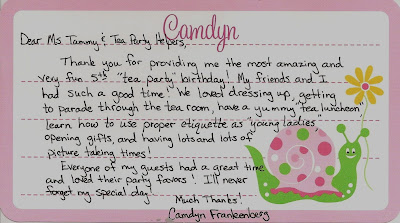 Camdyn
Dear Ms. Tammy & Tea Party Helpers,
Thank you for providing me the most amazing and
very fun 5th "tea party" birthday! My friends and I
had such a good time! We loved dressing up, getting
to parade through the tea room, have a yummy "tea luncheon",
learn how to use proper etiquette as "young ladies",
opening gifts, and having lots and lots of
picture taking times!
Everyone of my guests had a great time
and loved their party favors! I'll never
forget my special day!
Much Thanks!
Camdyn Frankenberg